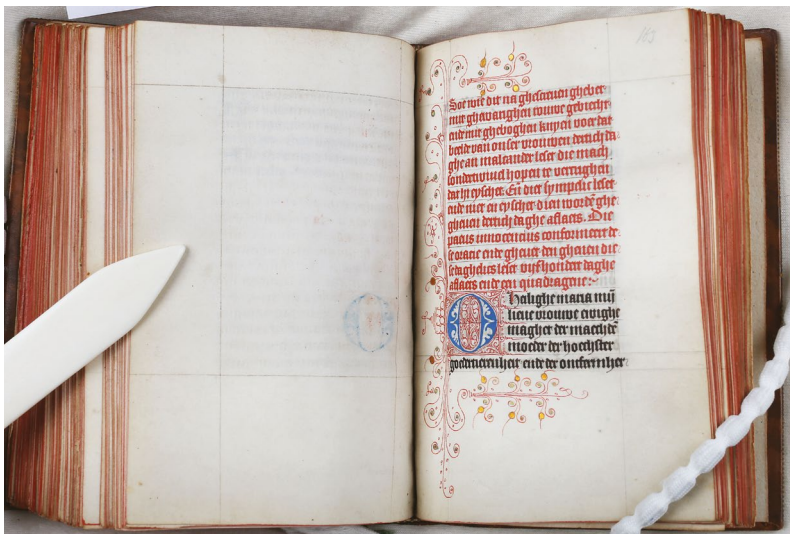 Soe wie dit na ghescreuen ghebet
mit ghevanghen rouwe ghebrecht
ende mit gheboghen knyen voer dat
beelde van onser vrouwen dertich da
ghe an malcander leset die mach
sonder twiuel hopen te vercrighen
dat hi eyschet En diet sympelic leset
ende niet en eyschet dien wordē ghe
gheuen dertich daghe aflaets Die
paeus innocencius confirmeert de
se oracie ende gheuet den ghenen die
se daghelics leset vyfhondert daghe
aflaets ende een quadragene
O Halighe maria mijn
lieue vrouwe ewighe
magher der maechdē
moeder der hoechster
goedertierenheit ende der